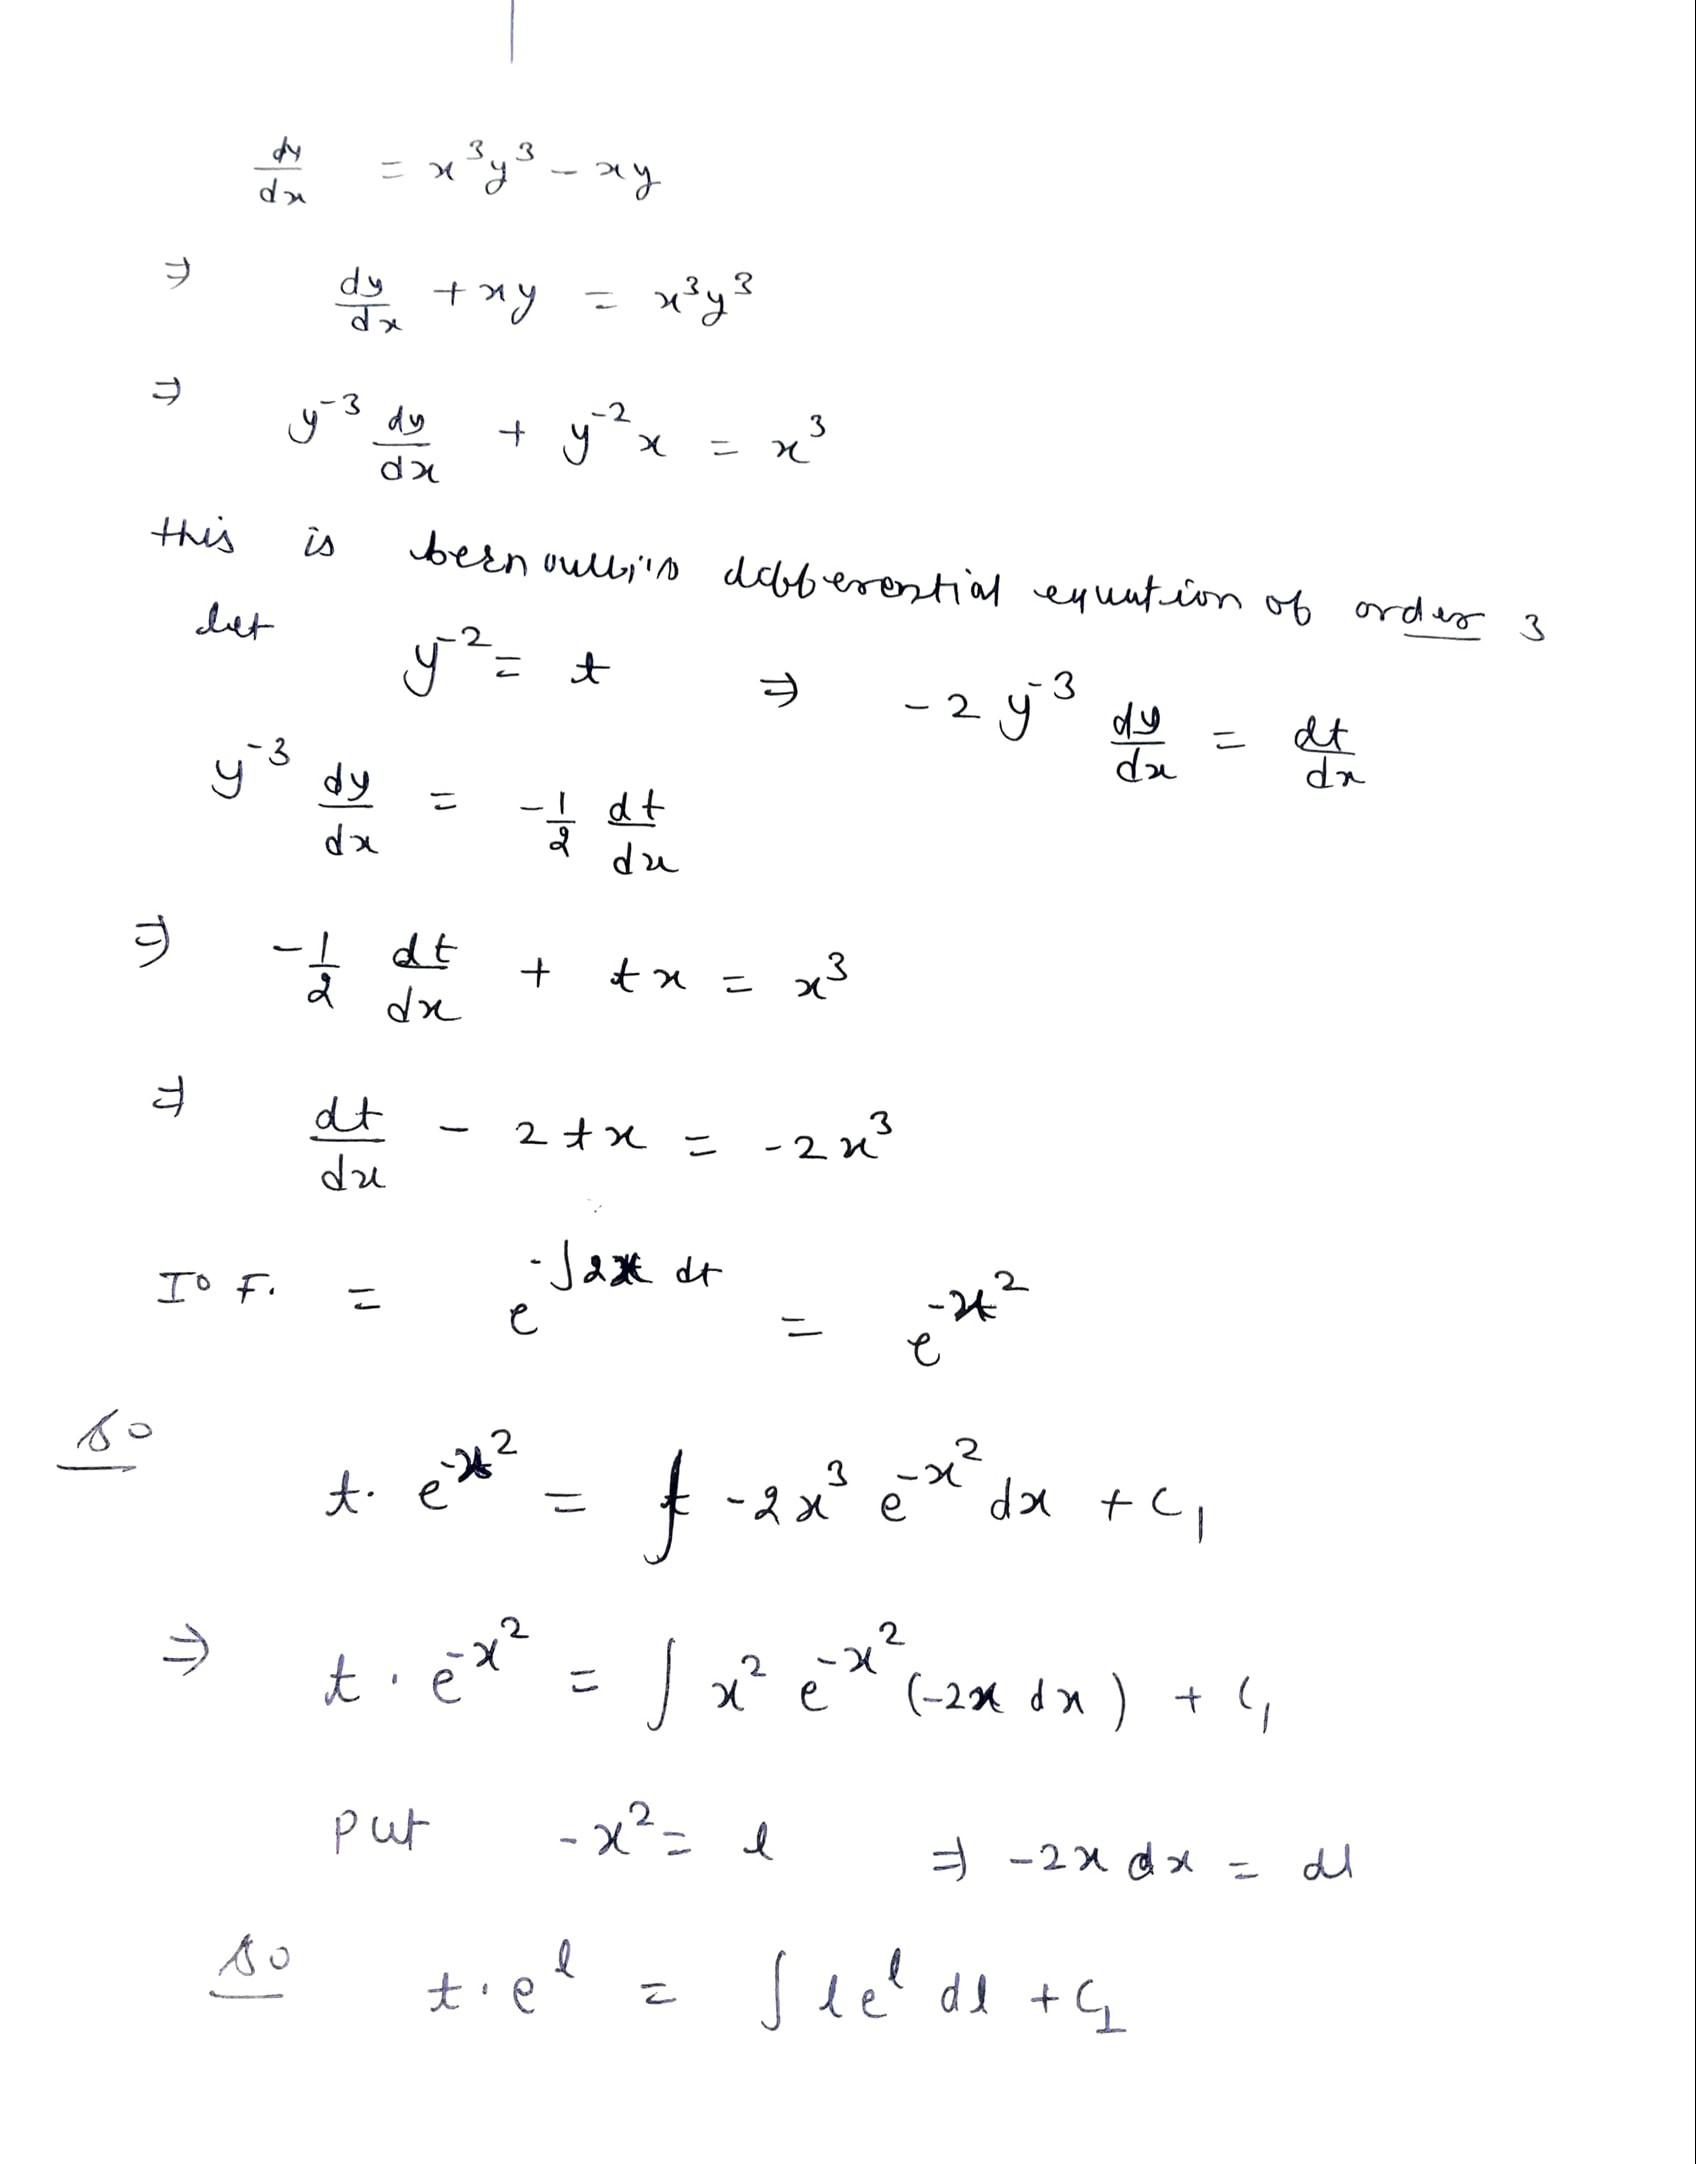 dy/dx = x³y³ - xy
⇒ dy/dx + xy = x³y³
⇒ y⁻³ dy/dx + y⁻² x = x³
this is bernoulli's differential equation of order 3
let y⁻² = t ⇒ -2 y⁻³ dy/dx = dt/dx
y⁻³ dy/dx = -1/2 dt/dx
⇒ -1/2 dt/dx + tx = x³
⇒ dt/dx - 2tx = -2x³
I.F. = e^(-∫2x dt) = e^(-x²)
so t. e^(-x²) = ∫ -2x³ e^(-x²) dx + C₁
⇒ t . e^(-x²) = ∫ x² e^(-x²) (-2x dx) + C₁
put -x² = l ⇒ -2x dx = dl
so t.e^l = ∫ l e^l dl + C₁